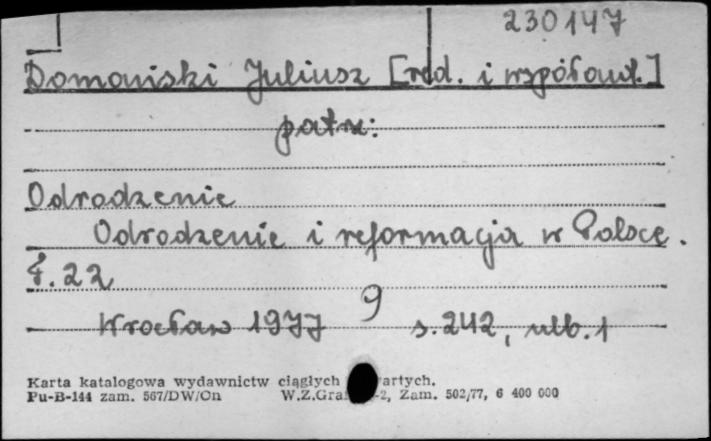 230147
Domański Juliusz [red. i współaut.]
patrz:
Odrodzenie
Odrodzenie i reformacja w Polsce.
T.22
Wrocław 1977 9 s.242, nlb.1
Karta katalogowa wydawnictw ciągłych
Pu-B-144 zam. 567/DW/On W.Z.Graf -2, Zam. 502/77, 6 400 000